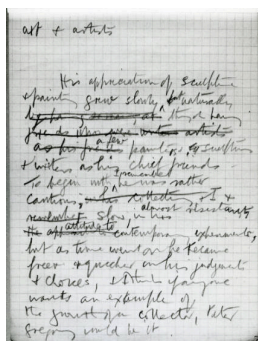 art + artists
His appreciation of sculpture
& painting grew slowly, but naturally
through having
friends who artists
as his few painters, sculptors
& writers as his chief friends
To begin with he was rather
cautious, & almost reluctantly
slow, in his
attitude contemporary experiments,
but as time went on he became
freer & quicker in his judgements
& choices, & I think if anyone
wants an example of
the growth of a collector, Peter
Gregory would be it